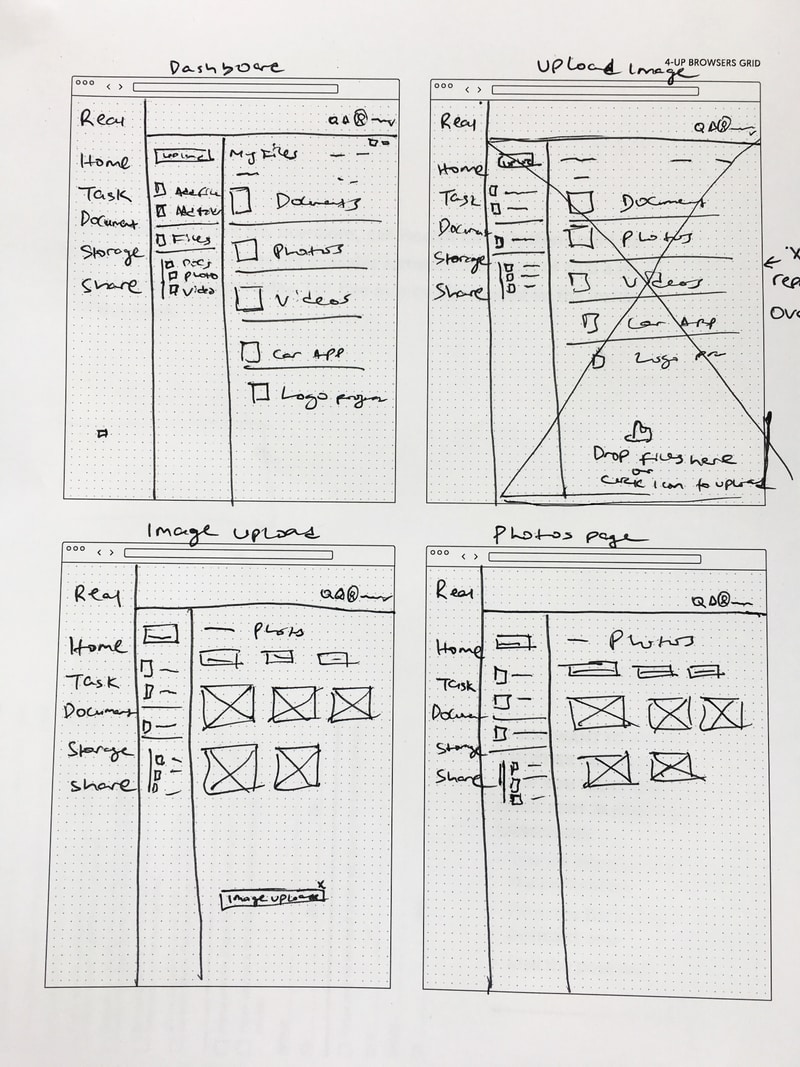 4-UP BROWSERS GRID
Dashboare
Real
Home
Task
Document
Storage
Share
upload
Add file
Files
Docs
Photo
Video
My Files
Documents
Photos
Videos
Car App
Logo project
Upload Image
Real
Home
Task
Document
Storage
Share
upload
Document
Photos
Videos
Car App
Logo
Drop files here
or
Click icon to upload
Image upload
Real
Home
Task
Document
Storage
Share
Photo
Image upload
x
Photos page
Real
Home
Task
Document
Storage
Share
Photos